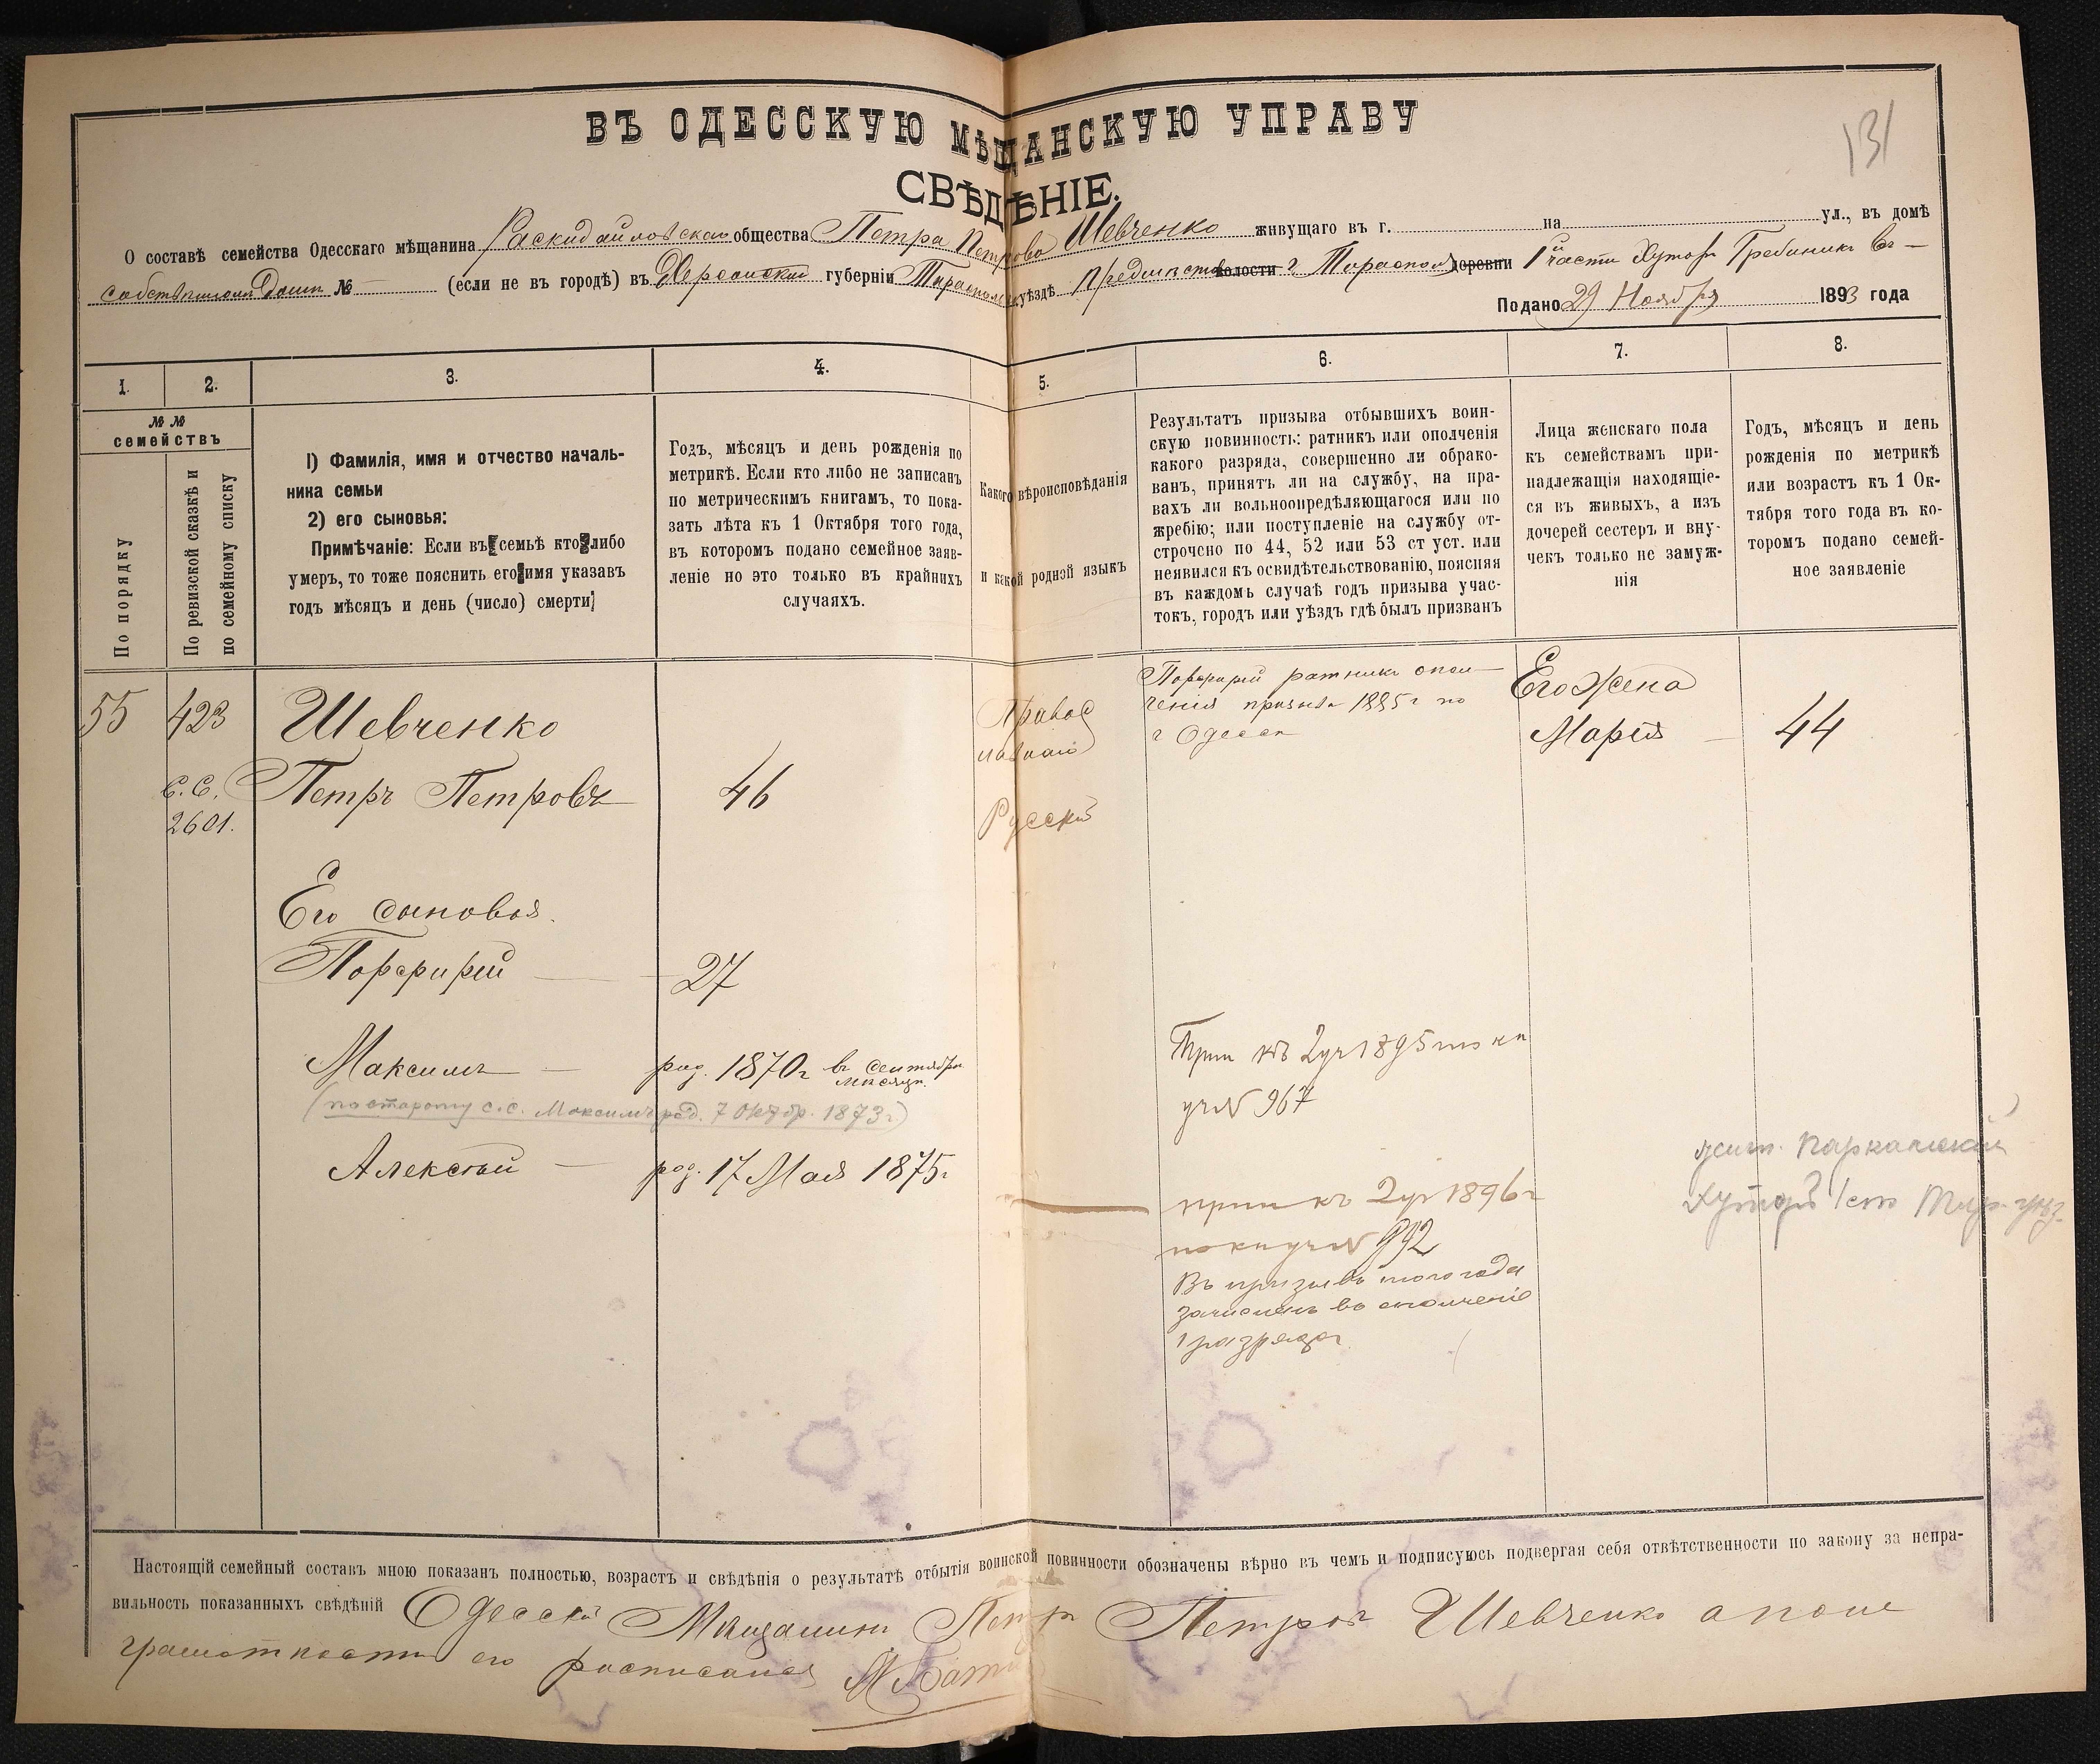 131
ВЪ ОДЕССКУЮ МѢЩАНСКУЮ УПРАВУ
СВѢДѢНІЕ.
О составѣ семейства Одесскаго мѣщанина Раскидайловскаго общества Петра Петрова Шевченко живущаго въ г. на ул., въ домѣ
собственномъ Домѣ № (если не въ городѣ) въ Херсонской губерніи Тираспольск уѣздѣ Предмѣстья волости г Тирасполя деревни 1й части Хуторъ Гребеникъ въ
Подано 29 Ноября 1893 года
1.
2.
3.
4.
5.
6.
7.
8.
№ №
семействъ
По порядку
По ревизской сказкѣ и
по семейному списку
1) Фамилія, имя и отчество началь-
ника семьи
2) его сыновья:
Примѣчаніе: Если въ семьѣ кто либо
умеръ, то тоже пояснить его имя указавъ
годъ мѣсяцъ и день (число) смерти;
Годъ, мѣсяцъ и день рожденія по
метрикѣ. Если кто либо не записанъ
по метрическимъ книгамъ, то пока-
зать лѣта къ 1 Октября того года,
въ которомъ подано семейное заяв-
леніе но это только въ крайнихъ
случаяхъ.
Какого вѣроисповѣданія
и какой родной языкъ
Результатъ призыва отбывшихъ воин-
скую повинность: ратникъ или ополченія
какого разряда, совершенно ли обрако-
ванъ, принятъ ли на службу, на пра-
вахъ ли вольноопредѣляющагося или по
жребію; или поступленіе на службу от-
строчено по 44, 52 или 53 ст уст. или
неявился къ освидѣтельствованію, поясняя
въ каждомъ случаѣ годъ призыва учас-
токъ, городъ или уѣздъ гдѣ былъ призванъ
Лица женскаго пола
къ семействамъ при-
надлежащія находящіе-
ся въ живыхъ, а изъ
дочерей сестеръ и вну-
чекъ только не замуж-
нія
Годъ, мѣсяцъ и день
рожденія по метрикѣ
или возрастъ къ 1 Ок-
тября того года въ ко-
торомъ подано семей-
ное заявленіе
55
423
С.С.
2601.
Шевченко
Петръ Петровъ
46
Правос
лавнаго
Русскій
Порфирій ратникъ опол
ченія призыва 1885г по
г Одессѣ
Его Жена
Марія
44
Его сыновья.
Порфирій
27
Максимъ
род. 1870г въ сентябрѣ
мѣсяцѣ.
(по старому с.с. Максимъ род. 7 Октябр. 1873г.)
Прип къ 2уч 1895 по кн
уч № 967
Алексѣй
род. 17 Мая 1875г
прип къ 2уч 1896г
по кн уч № 992
Въ призывъ того года
зачисленъ въ ополченіе
1 разряда
жит. Парканскій
Хуторъ 1 ст Тир. уѣз.
Настоящій семейный составъ мною показанъ полностью, возрастъ и свѣдѣнія о результатѣ отбытія воинской повинности обозначены вѣрно въ чемъ и подписуюсь подвергая себя отвѣтственности по закону за непра-
вильность показанныхъ свѣдѣній Одесскій Мѣщанинъ Петръ Петровъ Шевченко а по не
грамотности его росписался